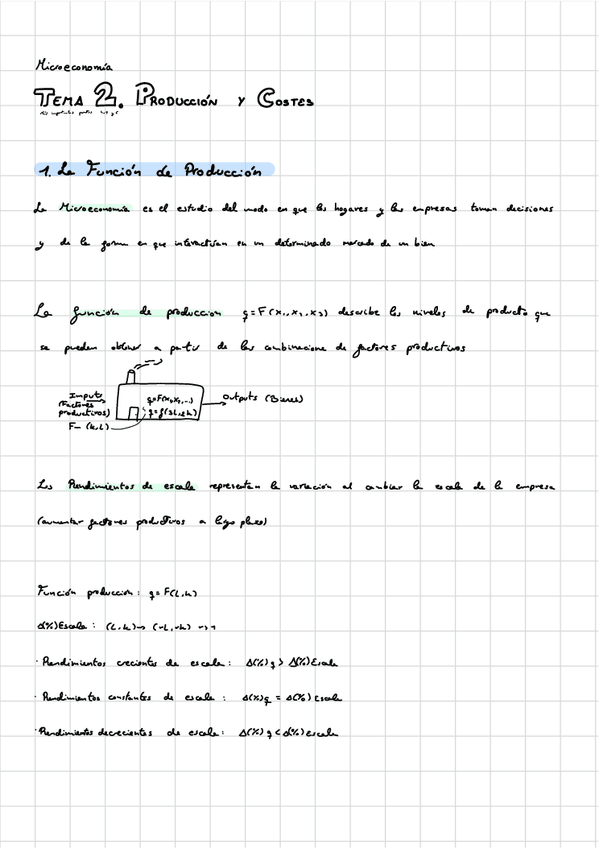 Microeconomía
TEMA 2. PRODUCCIÓN Y COSTES
1. La Función de Producción
La Microeconomía es el estudio del modo en que los hogares y las empresas toman decisiones
y de la forma en que interactúan en un determinado mercado de un bien
La función de produccion q=F(x₁,x₂,x₃) describe los niveles de producto que
se pueden obtener a partir de las combinacione de factores productivos
Imputs
(Factores
productivos)
F— (k,L)
q=F(x₁,x₂,...)
q=f(3L,2k)
Outputs (Bienes)
Los Rendimientos de escala representan la variación al cambiar la escala de la empresa
(aumentar factores productivos a largo plazo)
Función produccion: q=F(L,k)
Δ(%)Escala: (L,k)→
· Rendimientos crecientes de escala: Δ(%)q > Δ(%)Escala
· Rendimientos constantes de escala: Δ(%)q = Δ(%)Escala
· Rendimientos decrecientes de escala: Δ(%)q < Δ(%)escala